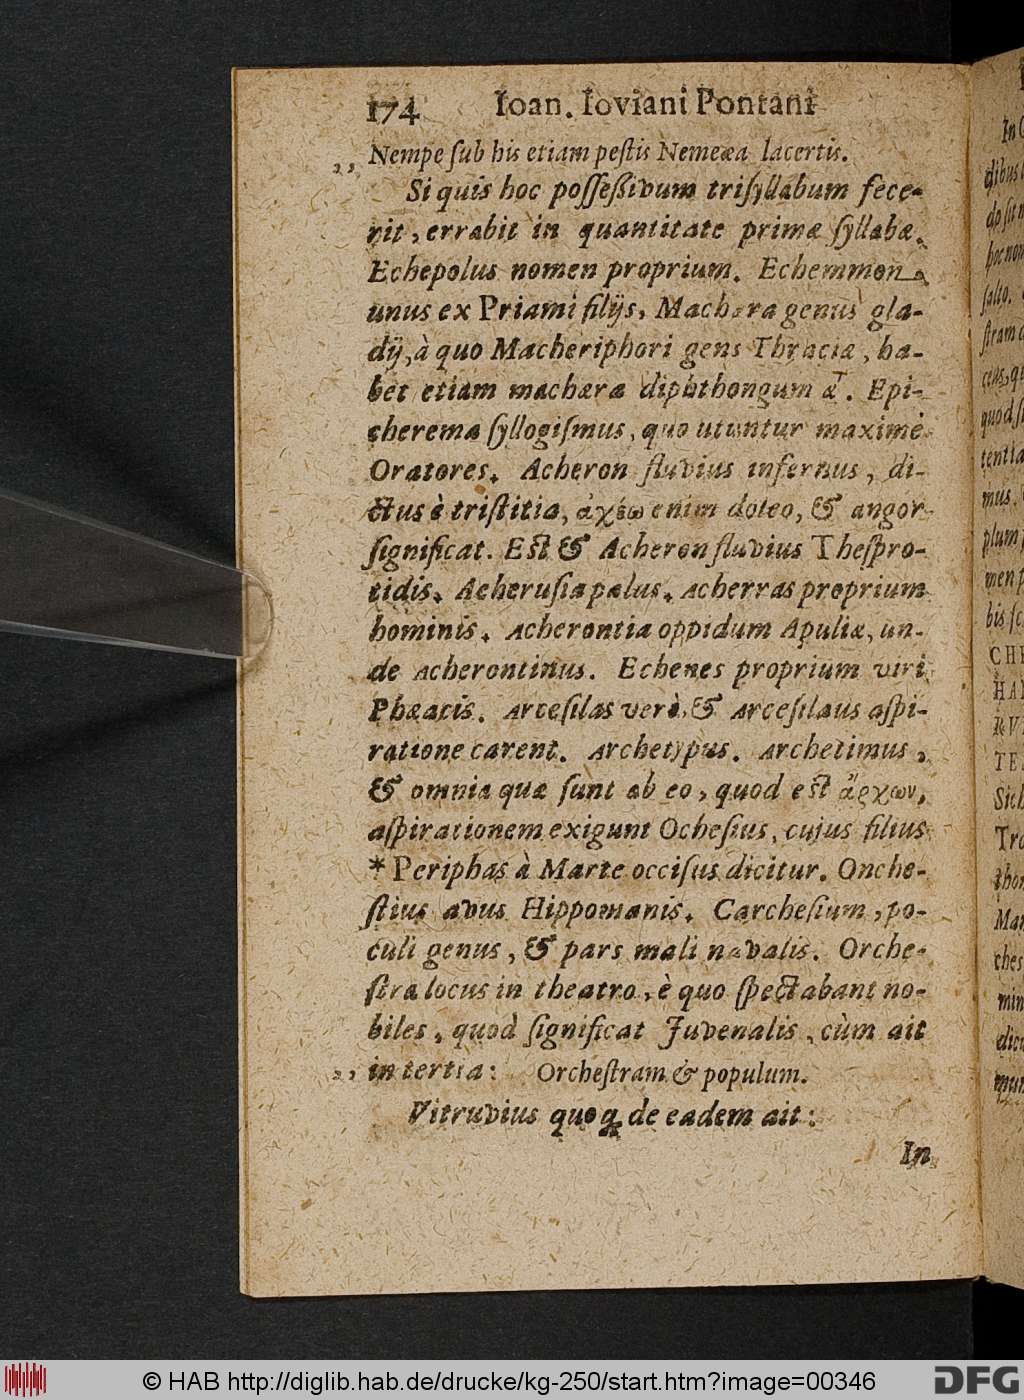 174 Ioan. Ioviani Pontani
„ Nempe ſub his etiam peſtis Nemeæa lacertis.
Si quis hoc poſſeßivum triſyllabum fece-
rit, errabit in quantitate primæ ſyllabæ.
Echepolus nomen proprium. Echemmon
unus ex Priami filijs, Machæra genus gla-
dij, à quo Macheriphori gens Thraciæ, ha-
bet etiam machæra diphthongum æ. Epi-
cherema ſyllogiſmus, quo utuntur maximè
Oratores. Acheron fluvius infernus, di-
ctus è triſtitia, ἀχέω enim doleo, & angor
ſignificat. Eſt & Acheron fluvius Theſpro-
tidis. Acheruſia palus. Acherras proprium
hominis. Acherontia oppidum Apuliæ, un-
de Acherontinus. Echenes proprium viri
Phæacis. Arceſilas verò, & Arceſilaus aſpi-
ratione carent. Archetypus. Archetimus,
& omnia quæ ſunt ab eo, quod eſt ἄρχων,
aſpirationem exigunt Ocheſius, cujus filius
* Periphas à Marte occiſus dicitur. Onche-
ſtius avus Hippomanis. Carcheſium, po-
culi genus, & pars mali navalis. Orche-
ſtra locus in theatro, è quo ſpectabant no-
biles, quod ſignificat Juvenalis, cùm ait
„ in tertia: Orcheſtram & populum.
Vitruvius quoq; de eadem ait:
In
In
dibus
hoc non
ſalto.
ſtram
quod
tentia
mus.
plum
men
bis
CHE
HA
RV
TE
Sich
Tro
Mar
ches
min
© HAB http://diglib.hab.de/drucke/kg-250/start.htm?image=00346
DFG